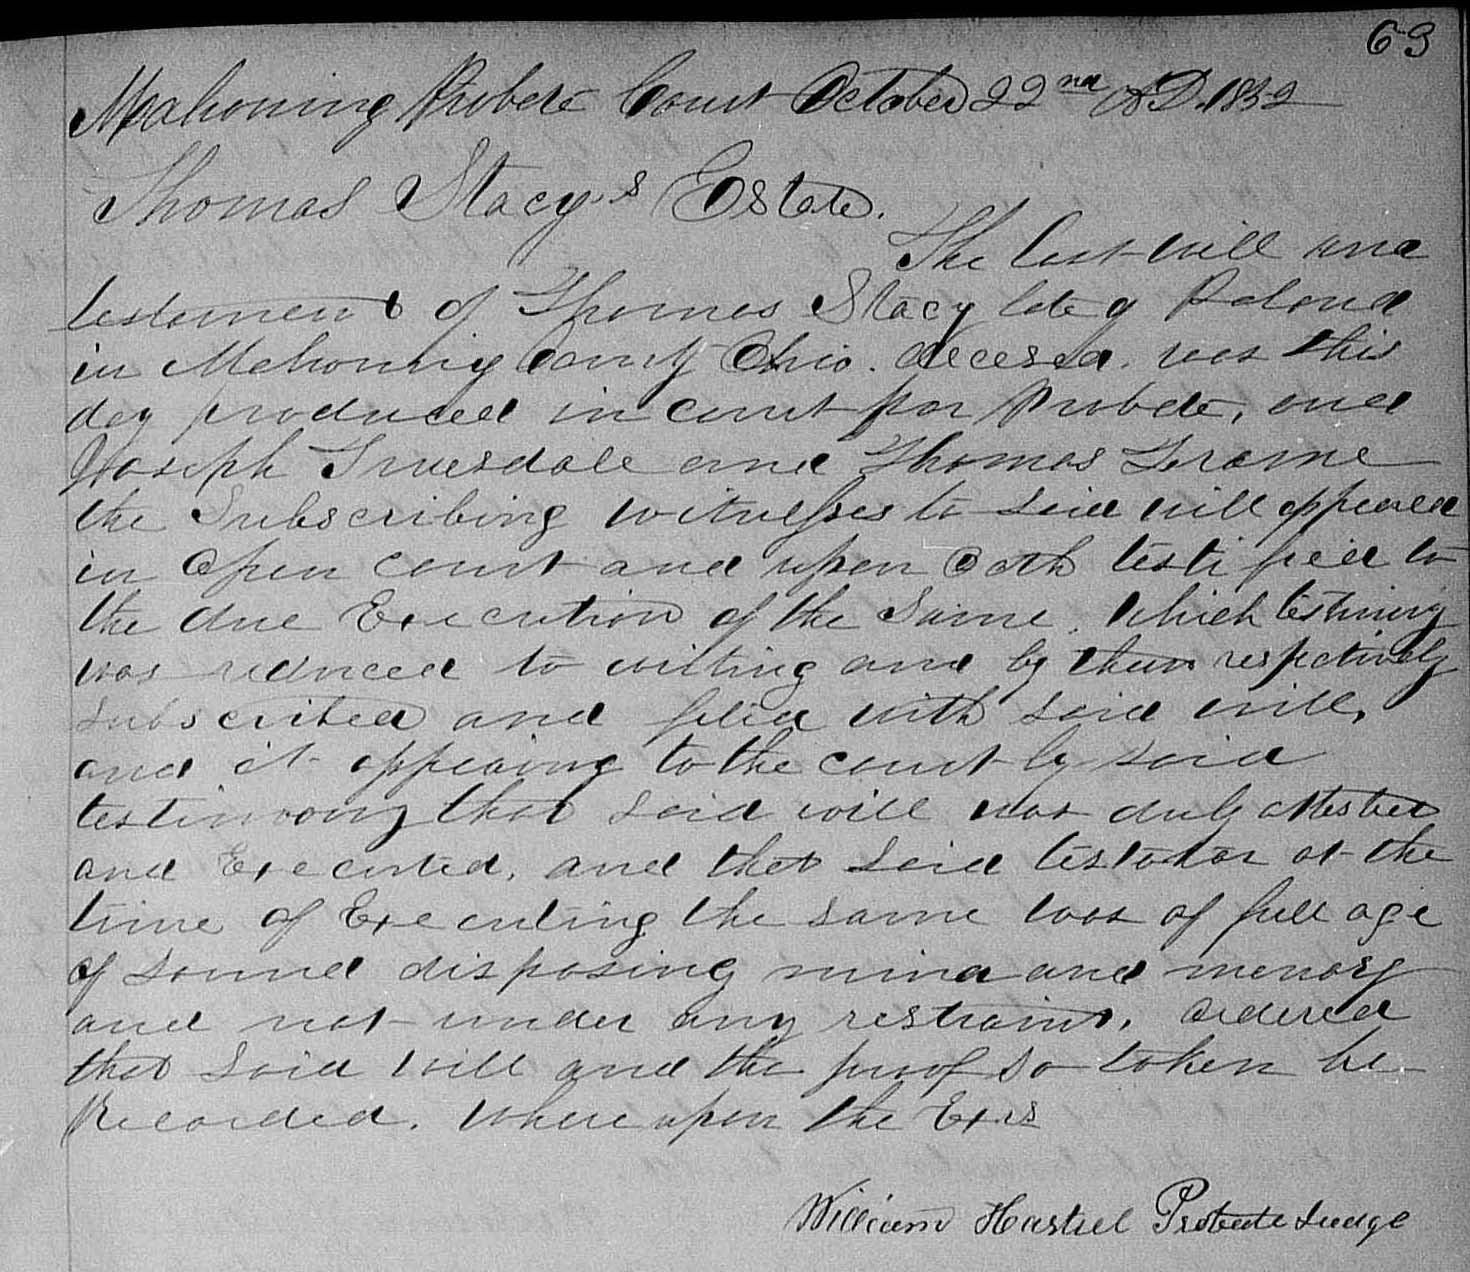 63
Mahoning Probate Court October 22nd A.D. 1852
Thomas Stacy's Estate.
The last will and
testament of Thomas Stacy late of Poland
in Mahoning County Ohio. decesed. was this
day produced in court for Probate, and
Joseph Truesdale and Thomas
the Subscribing witnesses to said will appeared
in open court and upon Oath testified to
the due Execution of the Same. Which testimony
was reduced to writing and by them respectively
subscribed and filed with said will,
and it appearing to the court by said
testimony that said will was duly attested
and Executed, and that said testator at the
time of Executing the same was of full age
of sound disposing mind and memory
and not under any restraint, ordered
that said will and the proof so taken be
Recorded. Where upon the Exrs
William Hartsel Probate Judge